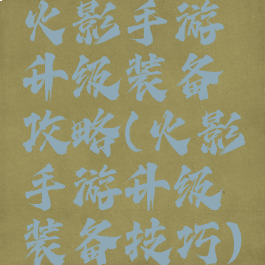 火影手游
升级装备
攻略(火影
手游升级
装备技巧)